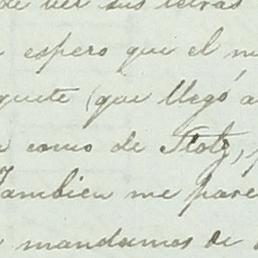 de ver sus letras
espero que el
quete (que llegó a
como de Stolz,
Tambien me pare
mandamos de